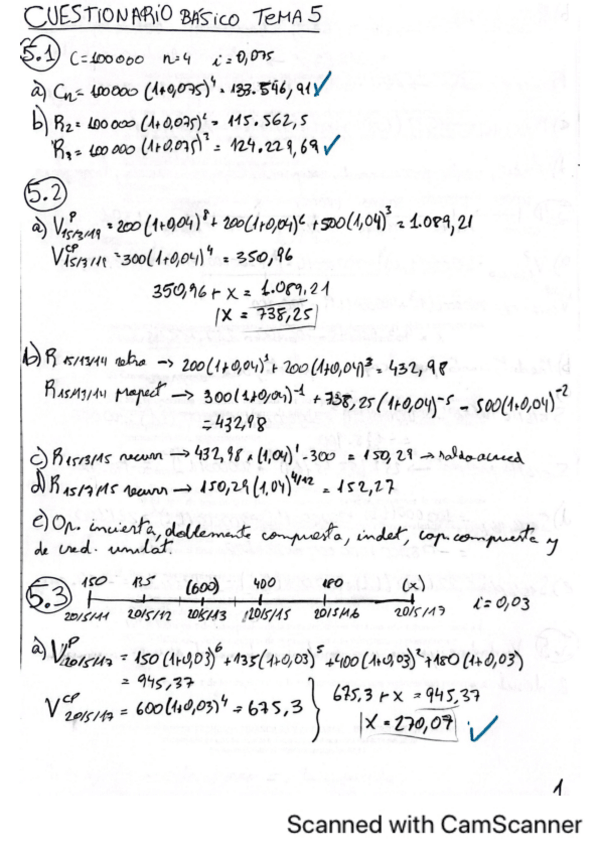 CUESTIONARIO BÁSICO TEMA 5
5.1 C=100000 n=4 i=0,075
a) Cn= 100000 (1+0,075)^4 = 133.546,91 ✓
b) R2= 100000 (1+0,075)^2 = 115.562,5
R3= 100000 (1+0,075)^3 = 124.229,69 ✓
5.2
a) V^P 15/3/19 = 200 (1+0,04)^8 + 200 (1+0,04)^6 + 500 (1,04)^3 = 1.089,21
V^CP = 300 (1+0,04)^4 = 350,96
350,96 + X = 1.089,21
X = 738,25
b) R 15/3/14 retro → 200 (1+0,04)^3 + 200 (1+0,04) = 432,98
R 15/3/14 prospect → 300 (1+0,04)^-1 + 738,25 (1+0,04)^-5 - 500 (1+0,04)^-2
= 432,98
c) R 15/3/15 recurr → 432,98 × (1,04)^1 - 300 = 150,29 → saldo acreed
d) R 15/7/15 recurr → 150,29 (1,04)^4/12 = 152,27
e) Op. incierta, doblemente compuesta, indet, cap. compuesta y
de cred. unilat.
150 135 (600) 400 180 (x)
5.3 i=0,03
20/5/11 20/5/12 20/5/13 20/5/15 20/5/16 20/5/17
a) V^P 20/5/17 = 150 (1+0,03)^6 + 135 (1+0,03)^5 + 400 (1+0,03)^2 + 180 (1+0,03)
= 945,37
V^CP 20/5/17 = 600 (1+0,03)^4 = 675,3 } 675,3 + X = 945,37
X = 270,07 ✓
1
Scanned with CamScanner